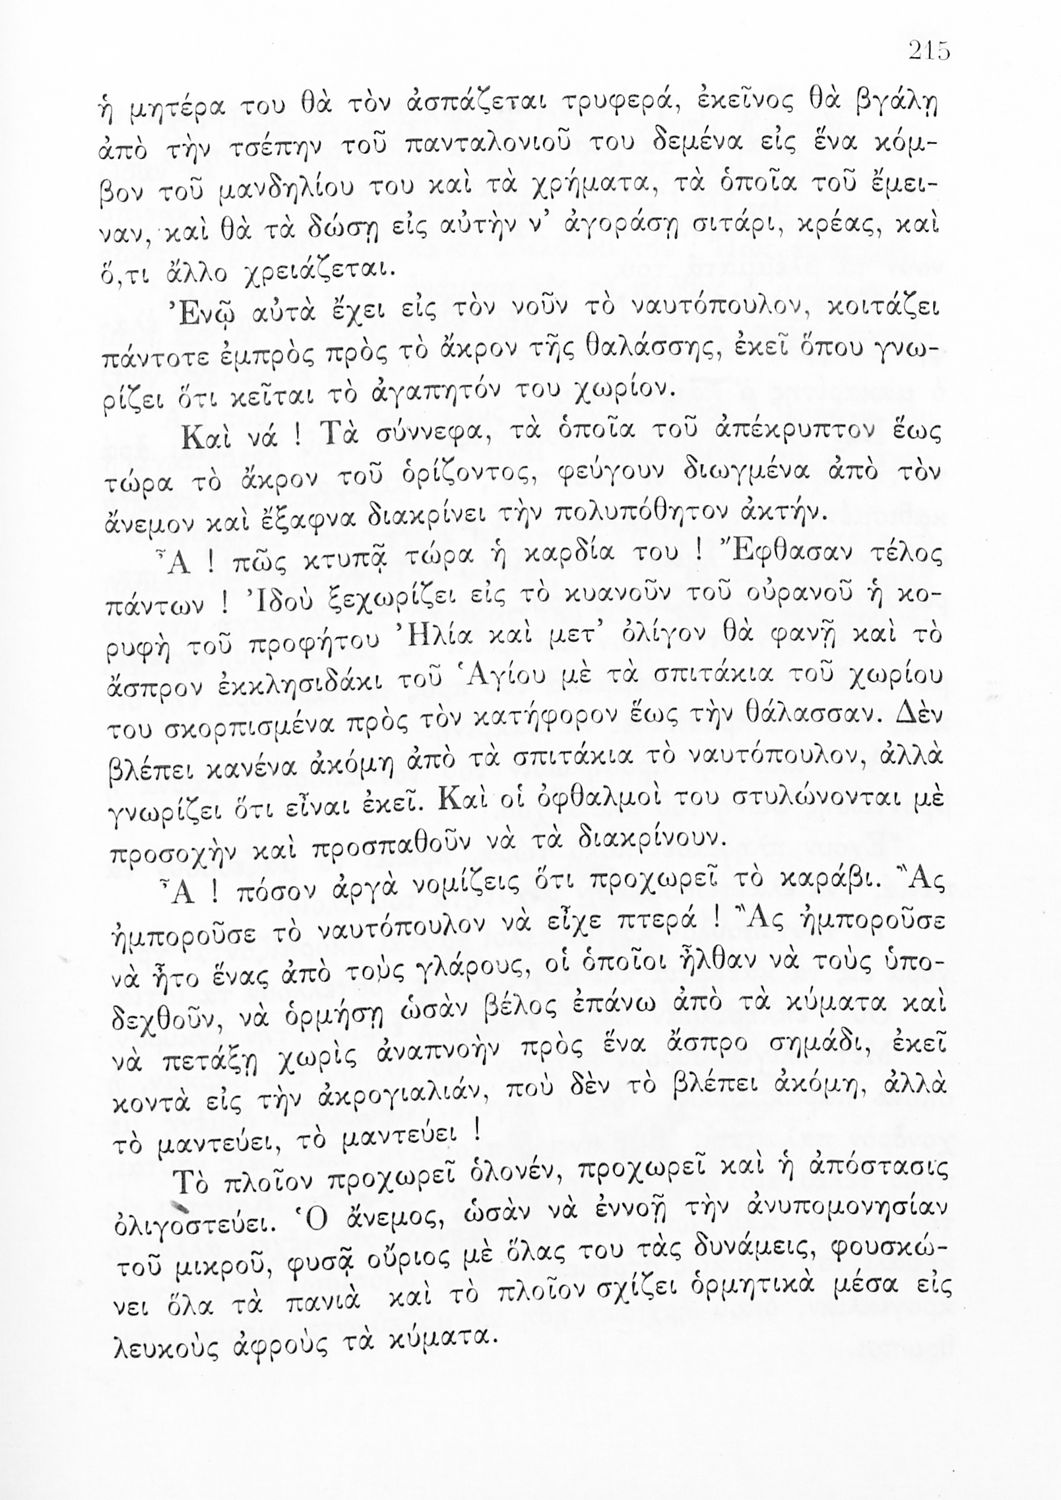 215
ἡ μητέρα του θὰ τὸν ἀσπάζεται τρυφερά, ἐκεῖνος θὰ βγάλῃ
ἀπὸ τὴν τσέπην τοῦ πανταλονιοῦ του δεμένα εἰς ἕνα κόμ-
βον τοῦ μανδηλίου του καὶ τὰ χρήματα, τὰ ὁποῖα τοῦ ἔμει-
ναν, καὶ θὰ τὰ δώσῃ εἰς αὐτὴν ν’ ἀγοράσῃ σιτάρι, κρέας, καὶ
ὅ,τι ἄλλο χρειάζεται.
Ἐνῷ αὐτὰ ἔχει εἰς τὸν νοῦν τὸ ναυτόπουλον, κοιτάζει
πάντοτε ἐμπρὸς πρὸς τὸ ἄκρον τῆς θαλάσσης, ἐκεῖ ὅπου γνω-
ρίζει ὅτι κεῖται τὸ ἀγαπητόν του χωρίον.
Καὶ νά ! Τὰ σύννεφα, τὰ ὁποῖα τοῦ ἀπέκρυπτον ἕως
τώρα τὸ ἄκρον τοῦ ὁρίζοντος, φεύγουν διωγμένα ἀπὸ τὸν
ἄνεμον καὶ ἔξαφνα διακρίνει τὴν πολυπόθητον ἀκτήν.
Ἆ ! πῶς κτυπᾷ τώρα ἡ καρδία του ! Ἔφθασαν τέλος
πάντων ! Ἰδοὺ ξεχωρίζει εἰς τὸ κυανοῦν τοῦ οὐρανοῦ ἡ κο-
ρυφὴ τοῦ προφήτου Ἠλία καὶ μετ’ ὀλίγον θὰ φανῇ καὶ τὸ
ἄσπρον ἐκκλησιδάκι τοῦ Ἁγίου μὲ τὰ σπιτάκια τοῦ χωρίου
του σκορπισμένα πρὸς τὸν κατήφορον ἕως τὴν θάλασσαν. Δὲν
βλέπει κανένα ἀκόμη ἀπὸ τὰ σπιτάκια τὸ ναυτόπουλον, ἀλλὰ
γνωρίζει ὅτι εἶναι ἐκεῖ. Καὶ οἱ ὀφθαλμοὶ του στυλώνονται μὲ
προσοχὴν καὶ προσπαθοῦν νὰ τὰ διακρίνουν.
Ἆ ! πόσον ἀργὰ νομίζεις ὅτι προχωρεῖ τὸ καράβι. Ἂς
ἠμποροῦσε τὸ ναυτόπουλον νὰ εἶχε πτερά ! Ἂς ἠμποροῦσε
νὰ ἦτο ἕνας ἀπὸ τοὺς γλάρους, οἱ ὁποῖοι ἦλθαν νὰ τοὺς ὑπο-
δεχθοῦν, νὰ ὁρμήσῃ ὡσὰν βέλος ἐπάνω ἀπὸ τὰ κύματα καὶ
νὰ πετάξῃ χωρὶς ἀναπνοὴν πρὸς ἕνα ἄσπρο σημάδι, ἐκεῖ
κοντὰ εἰς τὴν ἀκρογιαλιάν, ποὺ δὲν τὸ βλέπει ἀκόμη, ἀλλὰ
τὸ μαντεύει, τὸ μαντεύει !
Τὸ πλοῖον προχωρεῖ ὁλονέν, προχωρεῖ καὶ ἡ ἀπόστασις
ὀλιγοστεύει. Ὁ ἄνεμος, ὡσὰν νὰ ἐννοῇ τὴν ἀνυπομονησίαν
τοῦ μικροῦ, φυσᾷ οὔριος μὲ ὅλας του τὰς δυνάμεις, φουσκώ-
νει ὅλα τὰ πανιὰ καὶ τὸ πλοῖον σχίζει ὁρμητικὰ μέσα εἰς
λευκοὺς ἀφροὺς τὰ κύματα.